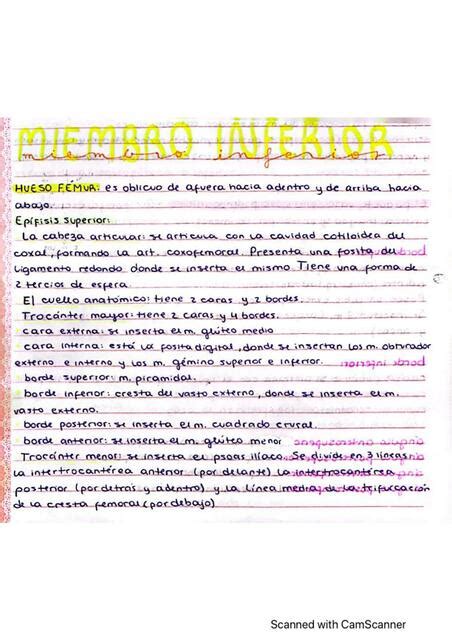 MIEMBRO INFERIOR
miembro inferior
HUESO FEMUR: es oblicuo de afuera hacia adentro y de arriba hacia
abajo.
Epífisis superior:
La cabeza articular: se articula con la cavidad cotiloidea del
coxal, formando la art. coxofemoral. Presenta una fosita del
ligamento redondo donde se inserta el mismo. Tiene una forma de
2 tercios de esfera
El cuello anatómico: tiene 2 caras y 2 bordes.
Trocánter mayor: tiene 2 caras y 4 bordes.
cara externa: se inserta el m. glúteo medio
cara interna: está la fosita digital, donde se insertan los m. obturador
externo e interno y los m. gémino superior e inferior.
borde superior: m. piramidal.
borde inferior: cresta del vasto externo, donde se inserta el m.
vasto externo.
borde posterior: se inserta el m. cuadrado crural.
borde anterior: se inserta el m. glúteo menor
Trocánter menor: se inserta el psoas ilíaco. Se divide en 3 líneas
la intertrocantérea anterior (por delante) la intertrocantérea
posterior (por detrás y adentro) y la línea media de la trifurcación
de la cresta femoral (por debajo)
Scanned with CamScanner